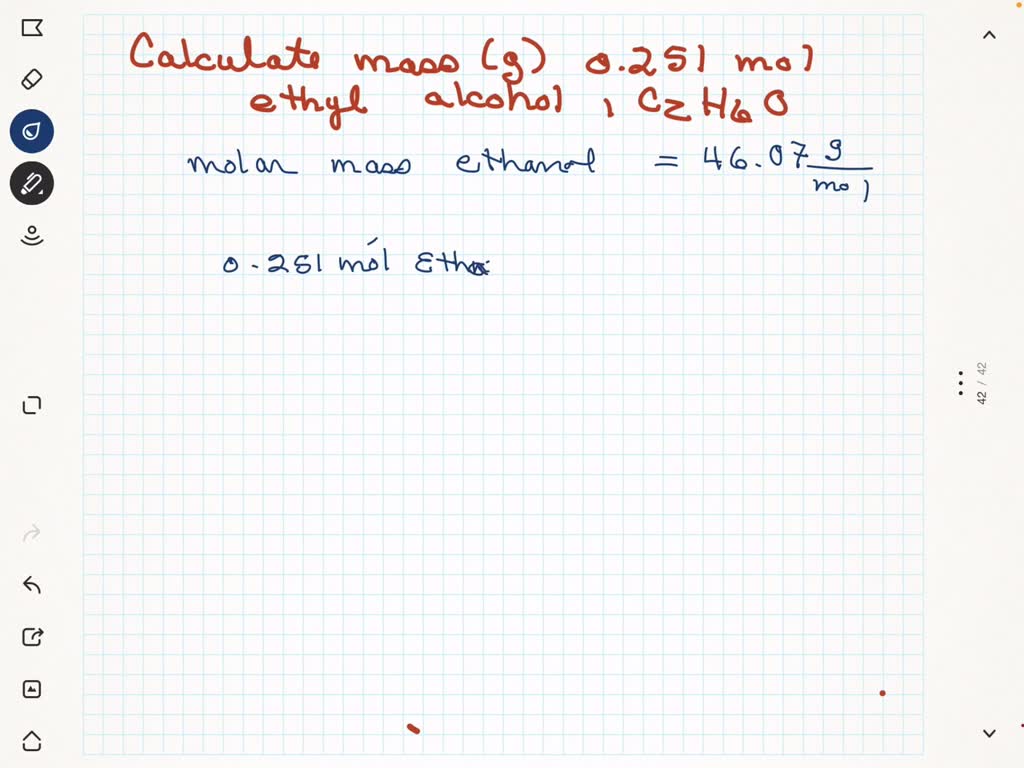 Calculate mass (g) 0.251 mol
ethyl alcohol, C2H6O
molar mass ethanol = 46.07 g/mol
0.251 mol Etha
42 / 42